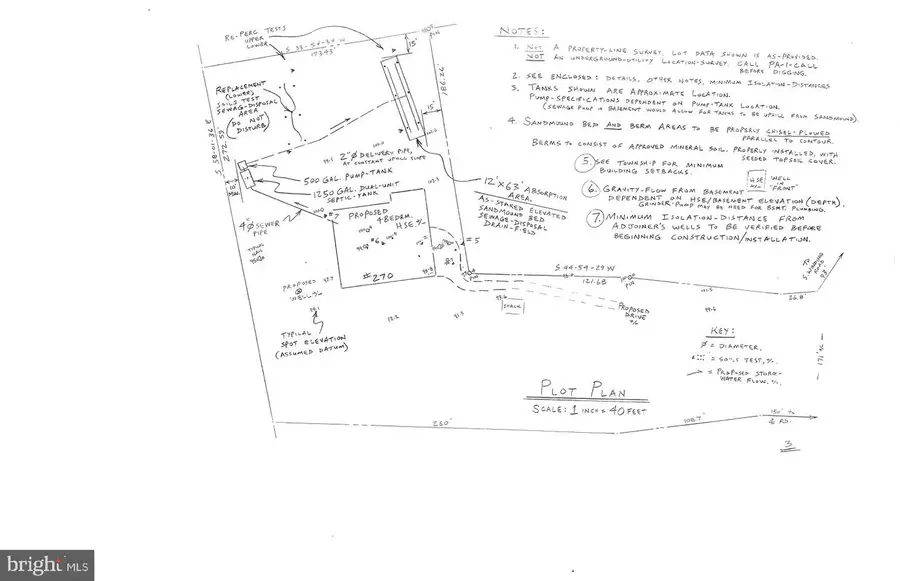 RE-PERC TESTS
UPPER
LOWER
S 35-54-34 W
PIN
15'
186.26'
15'
REPLACEMENT
(LOWER)
SOILS TEST
SEWAGE-DISPOSAL
AREA
(DO NOT
DISTURB)
S 58-01-36 E
272.59
10'
MIN.
2"Ø DELIVERY PIPE,
AT CONSTANT UPHILL SLOPE
500 GAL. PUMP-TANK
1250 GAL. DUAL-UNIT
SEPTIC-TANK
4"Ø SEWER
PIPE
PROPOSED
4 BEDRM.
HSE.
#270
12' X 63' ABSORPTION
AREA.
AS-STAKED ELEVATED
SANDMOUND BED
SEWAGE-DISPOSAL
DRAIN-FIELD
PROPOSED
WELL
TYPICAL
SPOT ELEVATION
(ASSUMED DATUM)
S 44-54-29 W
121.68
PIN
26.8'
TO
S. WINDING
ROAD
SHACK
PROPOSED
DRIVE
171'
NOTES:
1. NOT A PROPERTY-LINE SURVEY. LOT DATA SHOWN IS AS-PROVIDED.
NOT AN UNDERGROUND-UTILITY LOCATION-SURVEY. CALL PA-1-CALL
BEFORE DIGGING.
2. SEE ENCLOSED: DETAILS, OTHER NOTES, MINIMUM ISOLATION-DISTANCES
3. TANKS SHOWN ARE APPROXIMATE LOCATION.
PUMP-SPECIFICATIONS DEPENDENT ON PUMP-TANK LOCATION.
(SEWAGE PUMP IN BASEMENT WOULD ALLOW FOR TANKS TO BE UPHILL FROM SANDMOUND)
4. SANDMOUND BED AND BERM AREAS TO BE PROPERLY CHISEL-PLOWED
PARALLEL TO CONTOUR.
BERMS TO CONSIST OF APPROVED MINERAL SOIL, PROPERLY INSTALLED, WITH
SEEDED TOPSOIL COVER.
5. SEE TOWNSHIP FOR MINIMUM
BUILDING SETBACKS.
HSE
WELL
IN
"FRONT"
6. GRAVITY-FLOW FROM BASEMENT
DEPENDENT ON HSE/BASEMENT ELEVATION (DEPTH).
GRINDER-PUMP MAY BE NEED FOR BSMT. PLUMBING.
7. MINIMUM ISOLATION-DISTANCE FROM
ADJOINER'S WELLS TO BE VERIFIED BEFORE
BEGINNING CONSTRUCTION/INSTALLATION.
KEY:
Ø = DIAMETER.
= SOILS TEST,
= PROPOSED STORM-
WATER FLOW.
PLOT PLAN
SCALE: 1 INCH = 40 FEET
230'
108.7'
3
bright MLS